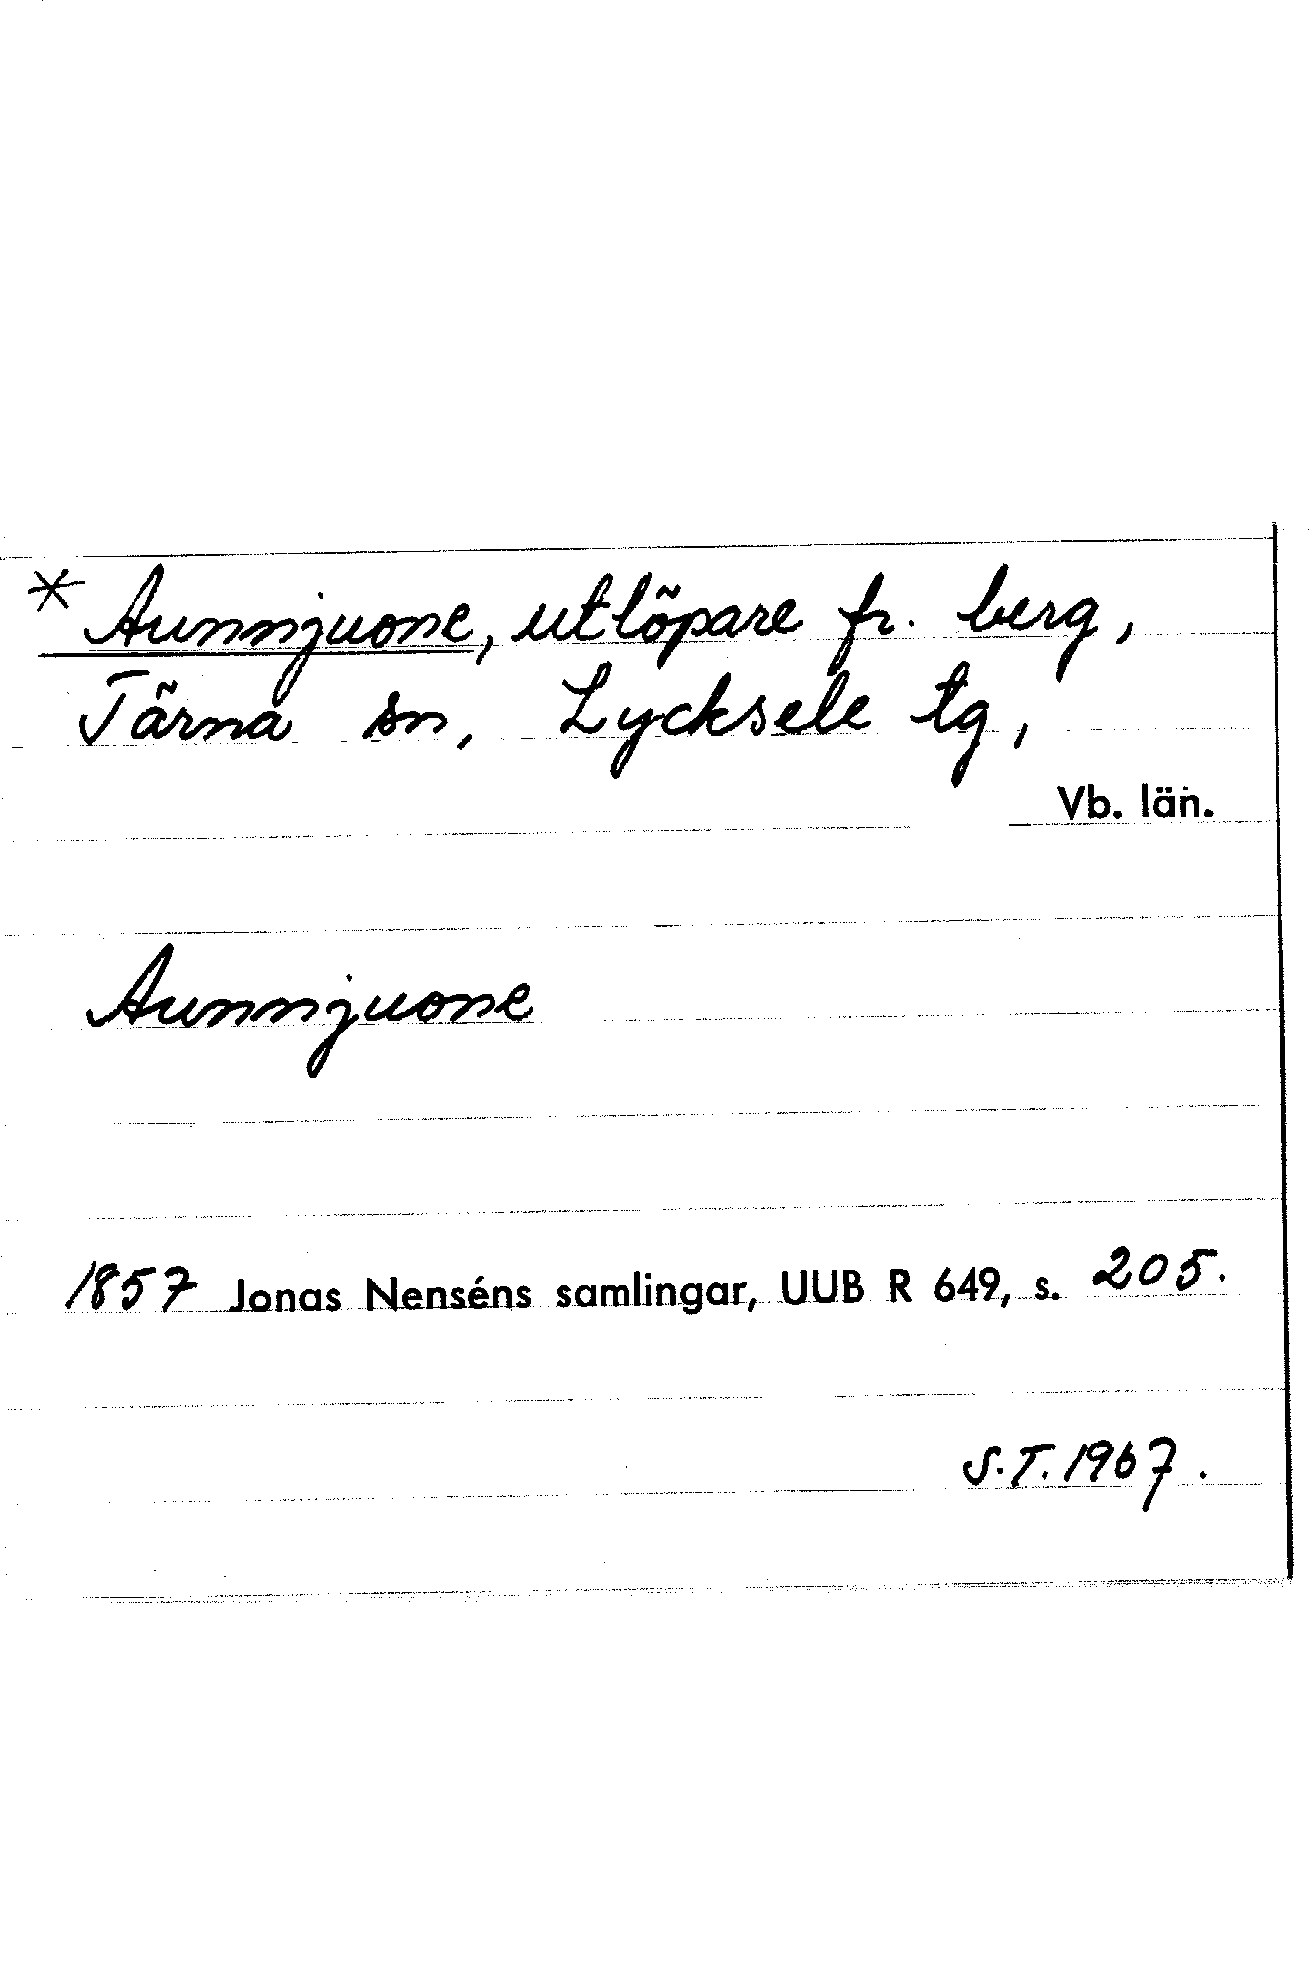 * Aunnjuone, utlöpare fr. berg,
Tärna sn, Lycksele tg,
Vb. län.
Aunnjuone
1857 Jonas Nenséns samlingar, UUB R 649, s. 205.
S.T. 1967.